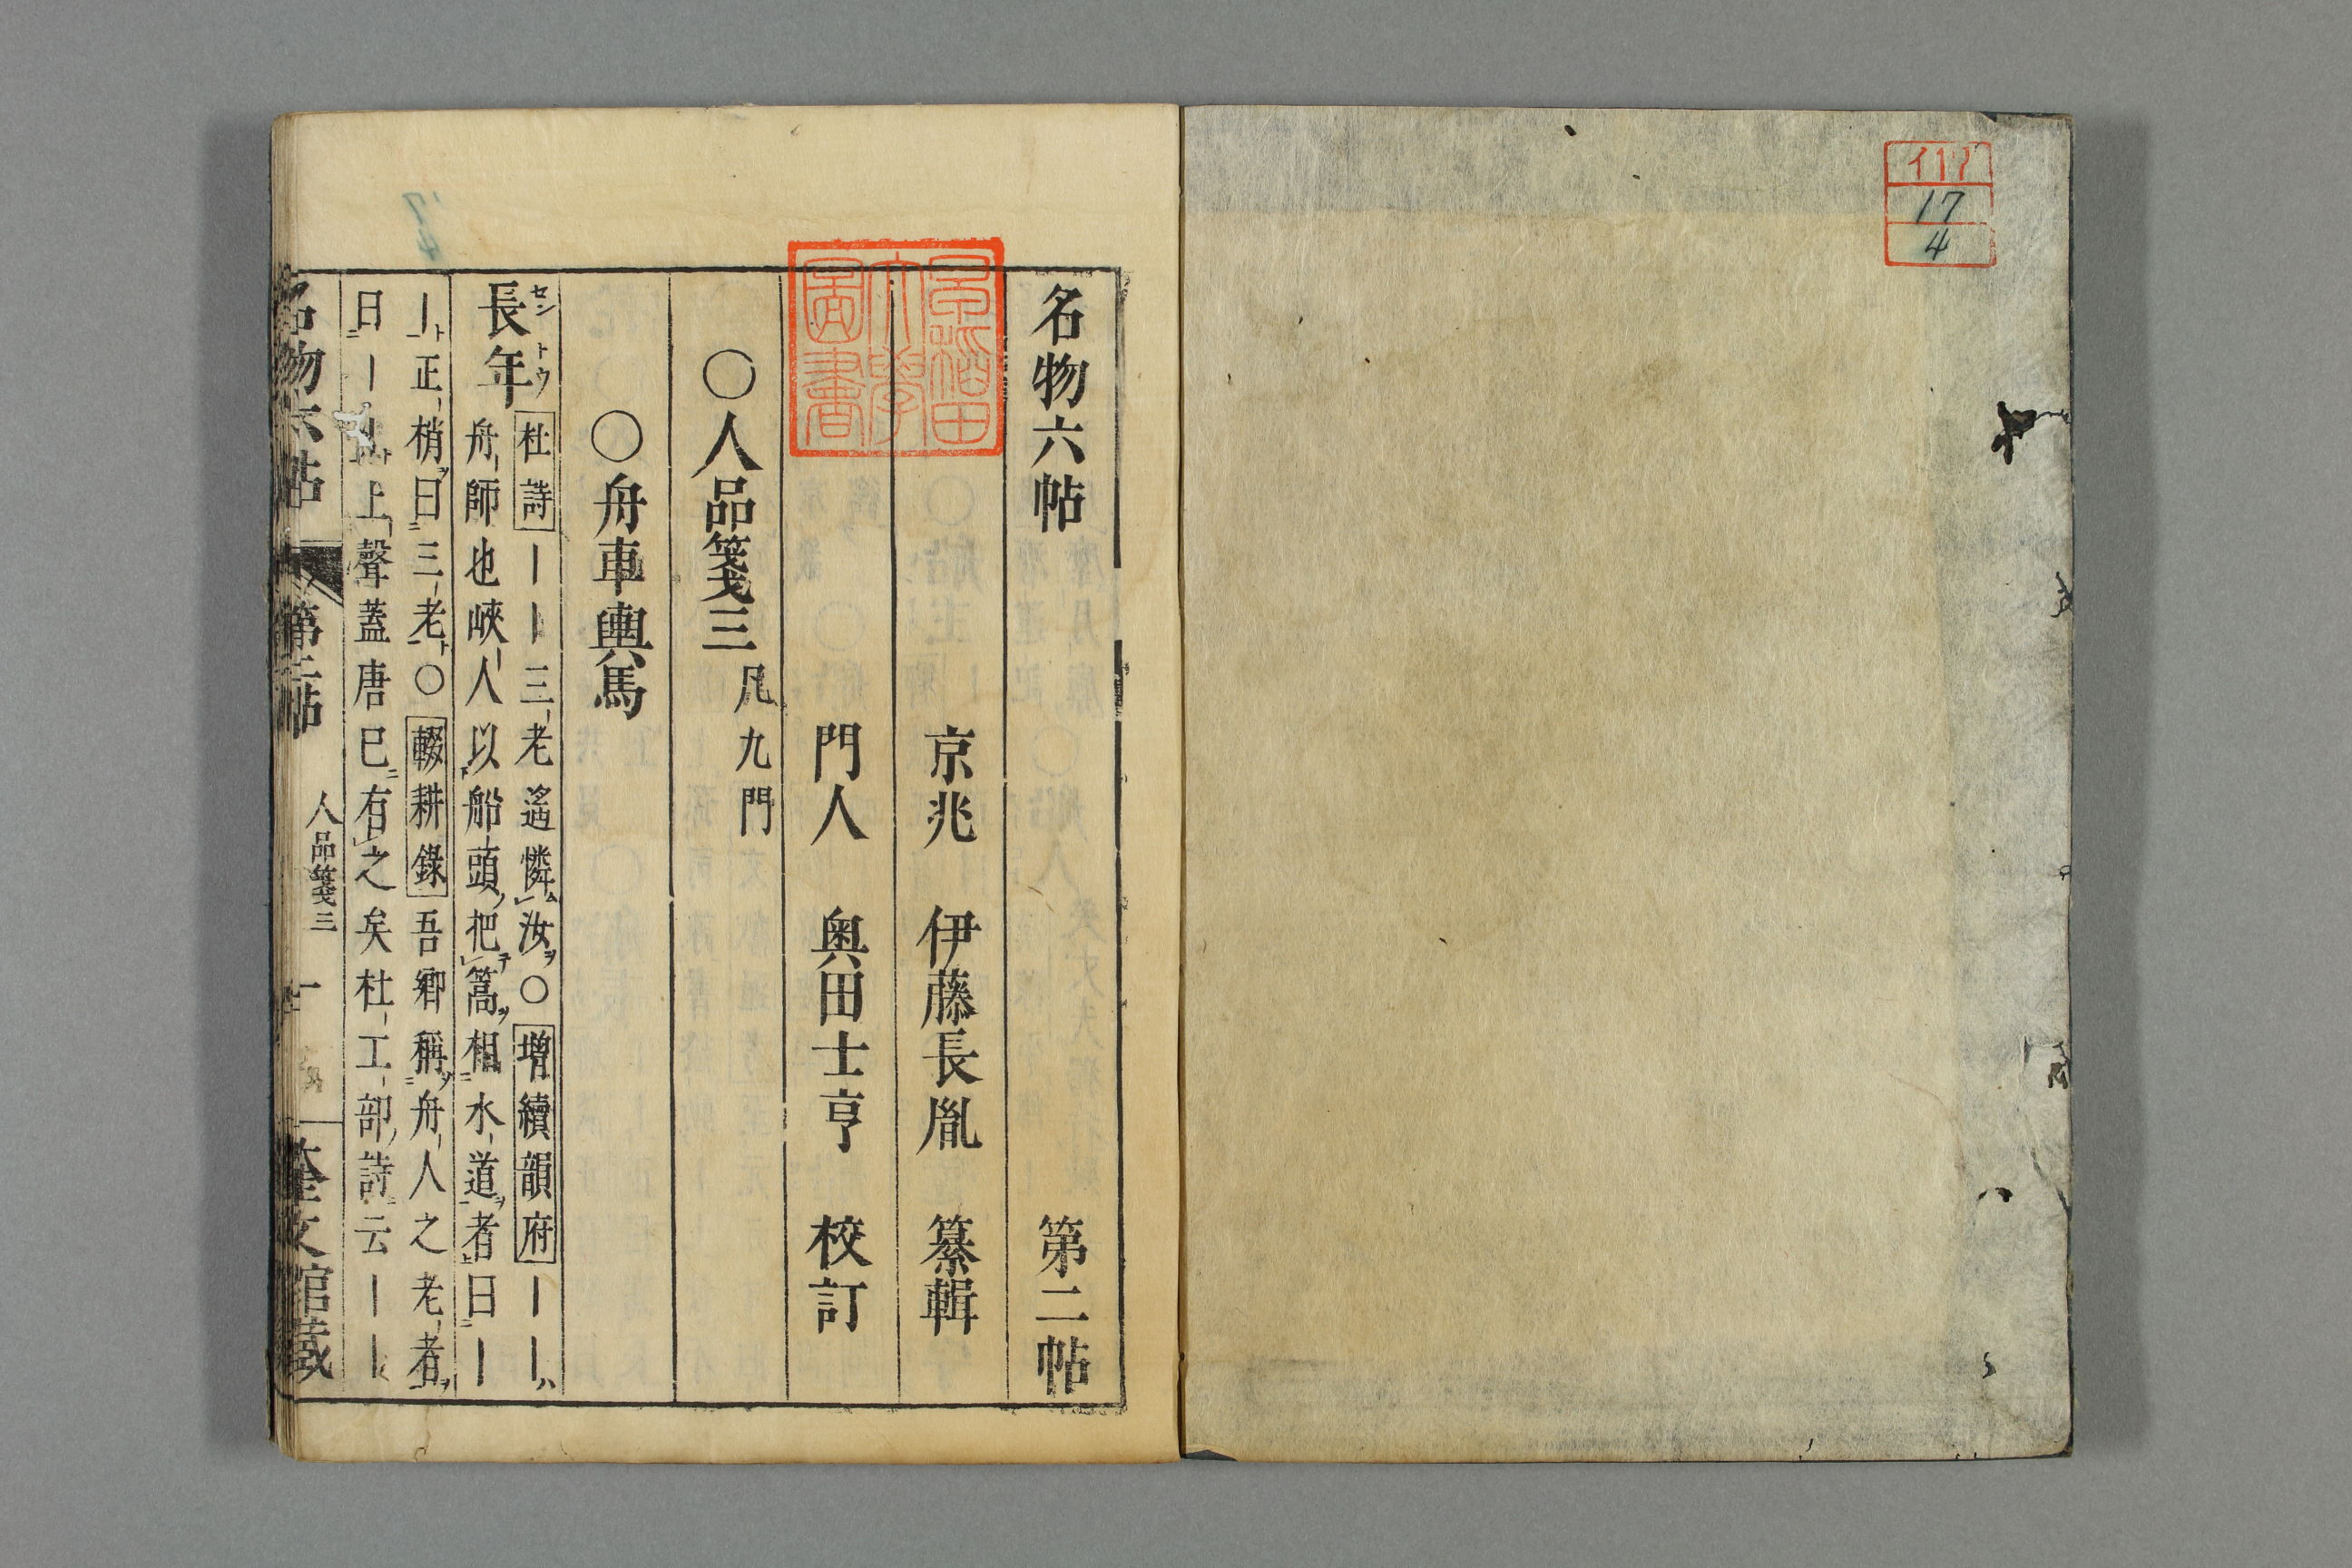 イ11
17
4
名物六帖 第二帖
早稲田大學圖書
京兆 伊藤長胤 纂輯
門人 奥田士亨 校訂
○人品箋三 凡九門
○舟車輿馬
長年 セントウ
杜詩｜｜三老遙憐汝○増續韻府｜｜
舟師也峽人以船頭把篙相水道者曰｜
｜正梢曰三老○輟耕錄吾鄉稱舟人之老者
曰｜｜上聲蓋唐已有之矣杜工部詩云｜｜
名物六帖 第二帖 人品箋三 一 奎文館藏